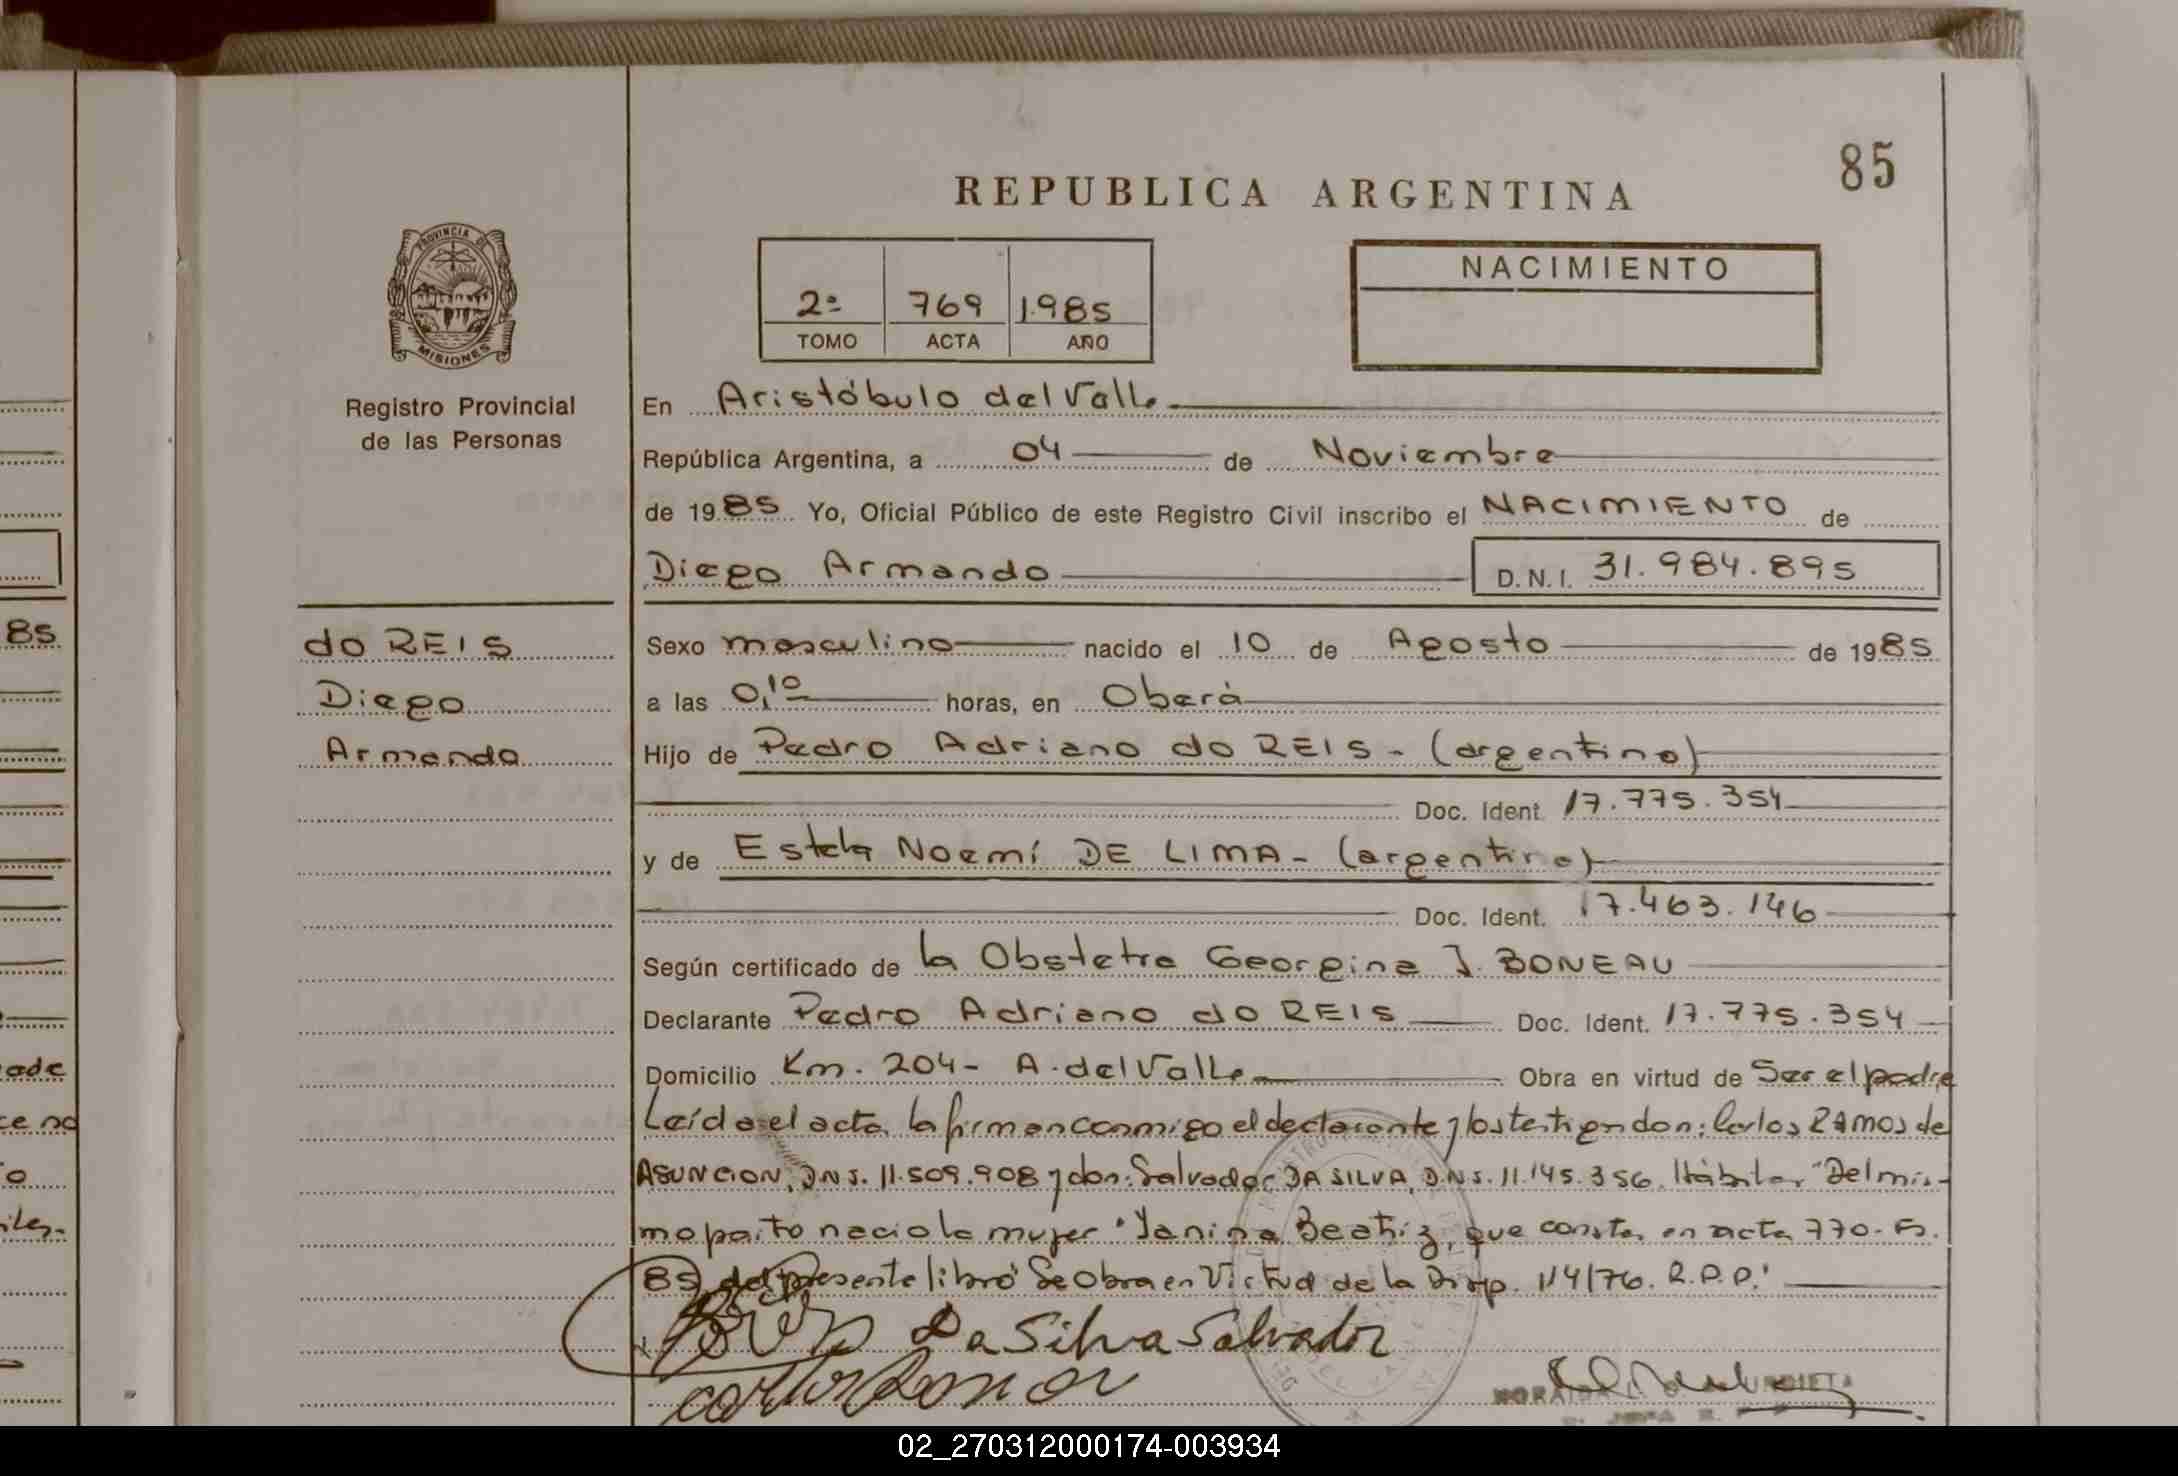 85
REPUBLICA ARGENTINA
PROVINCIA DE
MISIONES
Registro Provincial
de las Personas
2º 769 1.985
TOMO ACTA AÑO
NACIMIENTO
En Aristóbulo del Valle
República Argentina, a 04 de Noviembre
de 1985 Yo, Oficial Público de este Registro Civil inscribo el NACIMIENTO de
Diego Armando D.N.I. 31.984.895
do REIS
Diego
Armando
Sexo masculino nacido el 10 de Agosto de 1985
a las 0,10 horas, en Oberá
Hijo de Pedro Adriano do REIS - (argentino)
Doc. Ident. 17.775.354
y de Estela Noemí DE LIMA - (argentina)
Doc. Ident. 17.463.146
Según certificado de la Obstetra Georgina J. BONEAU
Declarante Pedro Adriano do REIS Doc. Ident. 17.775.354
Domicilio Km. 204 - A. del Valle Obra en virtud de Ser el padre
Leída el acta la firman conmigo el declarante y los testigos don: Carlos RAMOS de
ASUNCION, DNI. 11.509.908 y don: Salvador DA SILVA, DNI. 11.145.356. Hábiles "Del mis-
mo parto nacio la mujer "Yanina Beatriz, que consta en acta 770- Fs.
85 del presente libro" Se Obra en Virtud de la Disp. 114/76. R.P.P."
Da Silva Salvador
Carlos Ramos
85
02_270312000174-003934